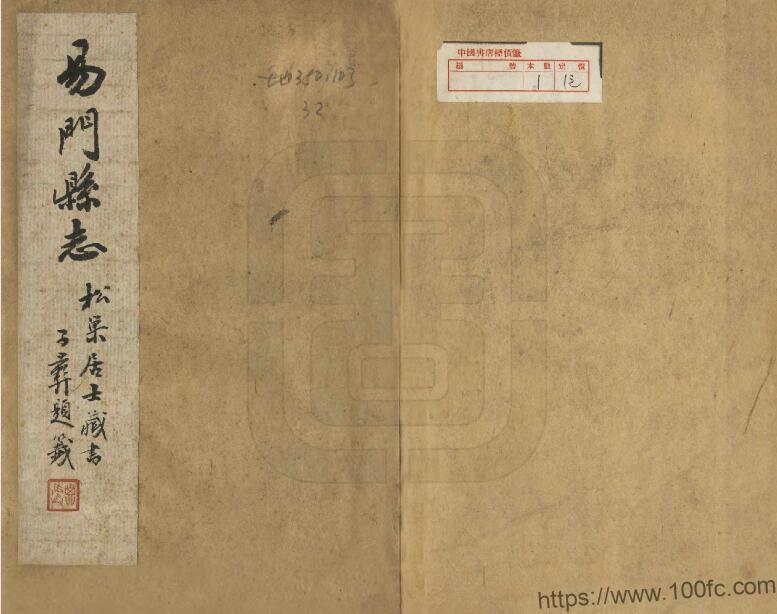 易門縣志
松巢居士藏書
子彝題籤
3501103
32
中國書店標價籤
冊數 本數 定價
1
https://www.100fc.com